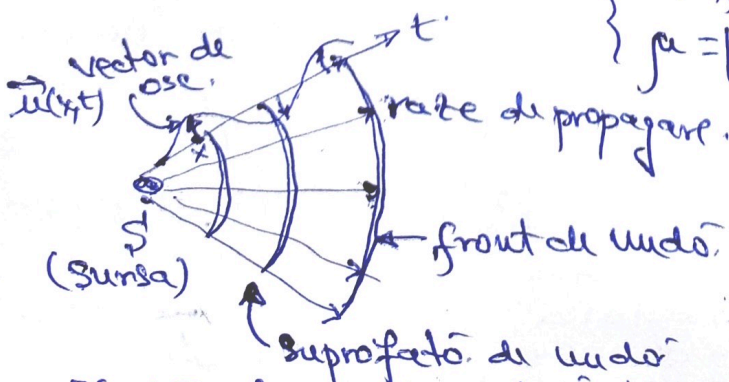 t.
vector de
osc.
u(x,t)
μ =
raze de propagare.
x
S
(sursa)
front de undă
suprafată de undă